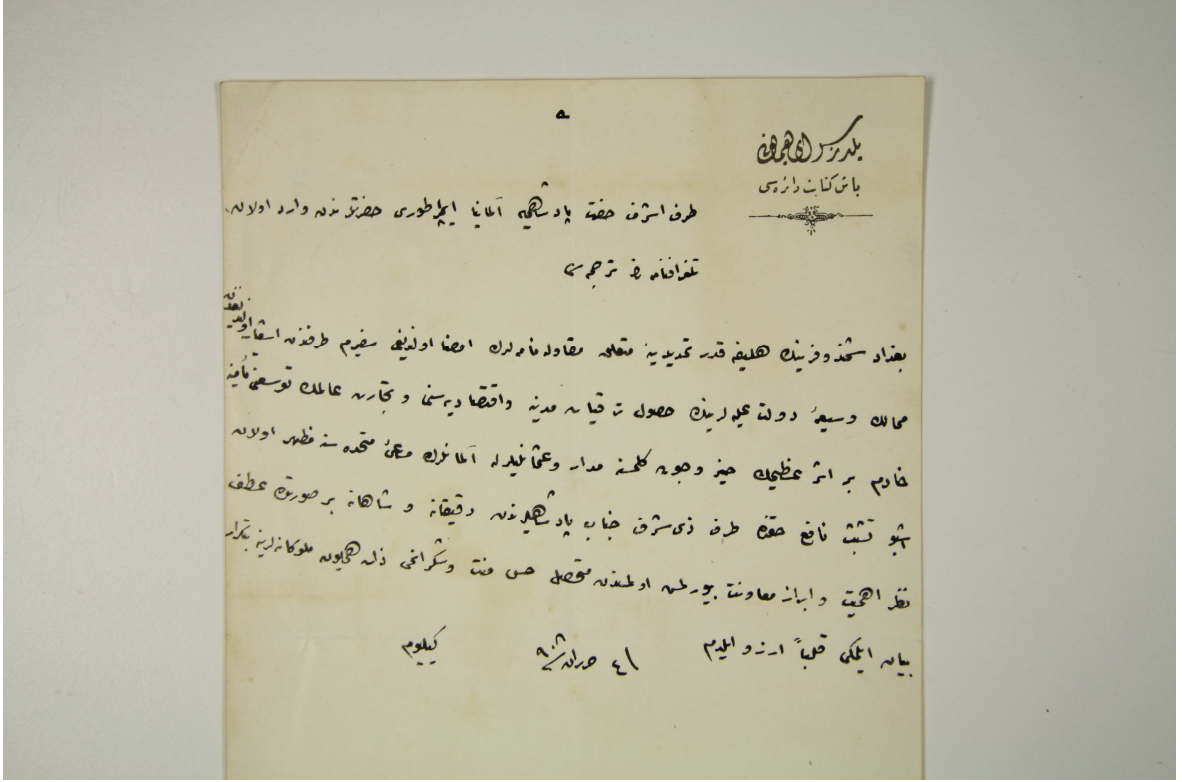 ه
يلديز سراى همايونى
باش كتابت دائره سى
طرف اشرف حضرت پادشاهى يه آلمانيا ايمپراطورى حضرتلرندن وارد اولان
تلغرافنامه نك ترجمه سى
بغداد شمندوفرينك حليفه قدر تمديدينه متعلق مقاوله نامه لرك امضا اولنديغى سفيرم طرفندن اشعار اولنديغندن
ممالك وسيعۀ دولت عليه لرينك حصول ترقيات مدنيه و اقتصاديه سنى و تجارت عالمك توسعنى تأمينه
خادم بر اثر عظيمك حيز وجوده كلمسنه مدار و عثمانليلرله آلمانلرك مساعئ متحده سنه مظهر اولان
اشبو تشبث نافع حقنده طرف ذى شرف جناب پادشاهيلرندن دقيقانه و شاهانه بر صورتده عطف
نظر اهميت و ابراز معاونت بيورلمش اولمسندن متحصل حس منت و شكرانمى ذات همايون ملوكانه لرينه بتكرار
بيان ايتمكى قلباً آرزو ايلدم
١٤ حزيران سنه ٩٠٨
گيليوم